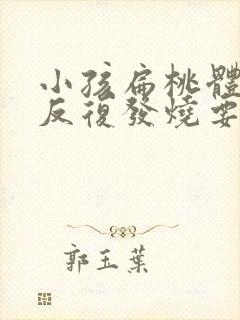 小孩扁桃體
反復發燒要
郭玉葉